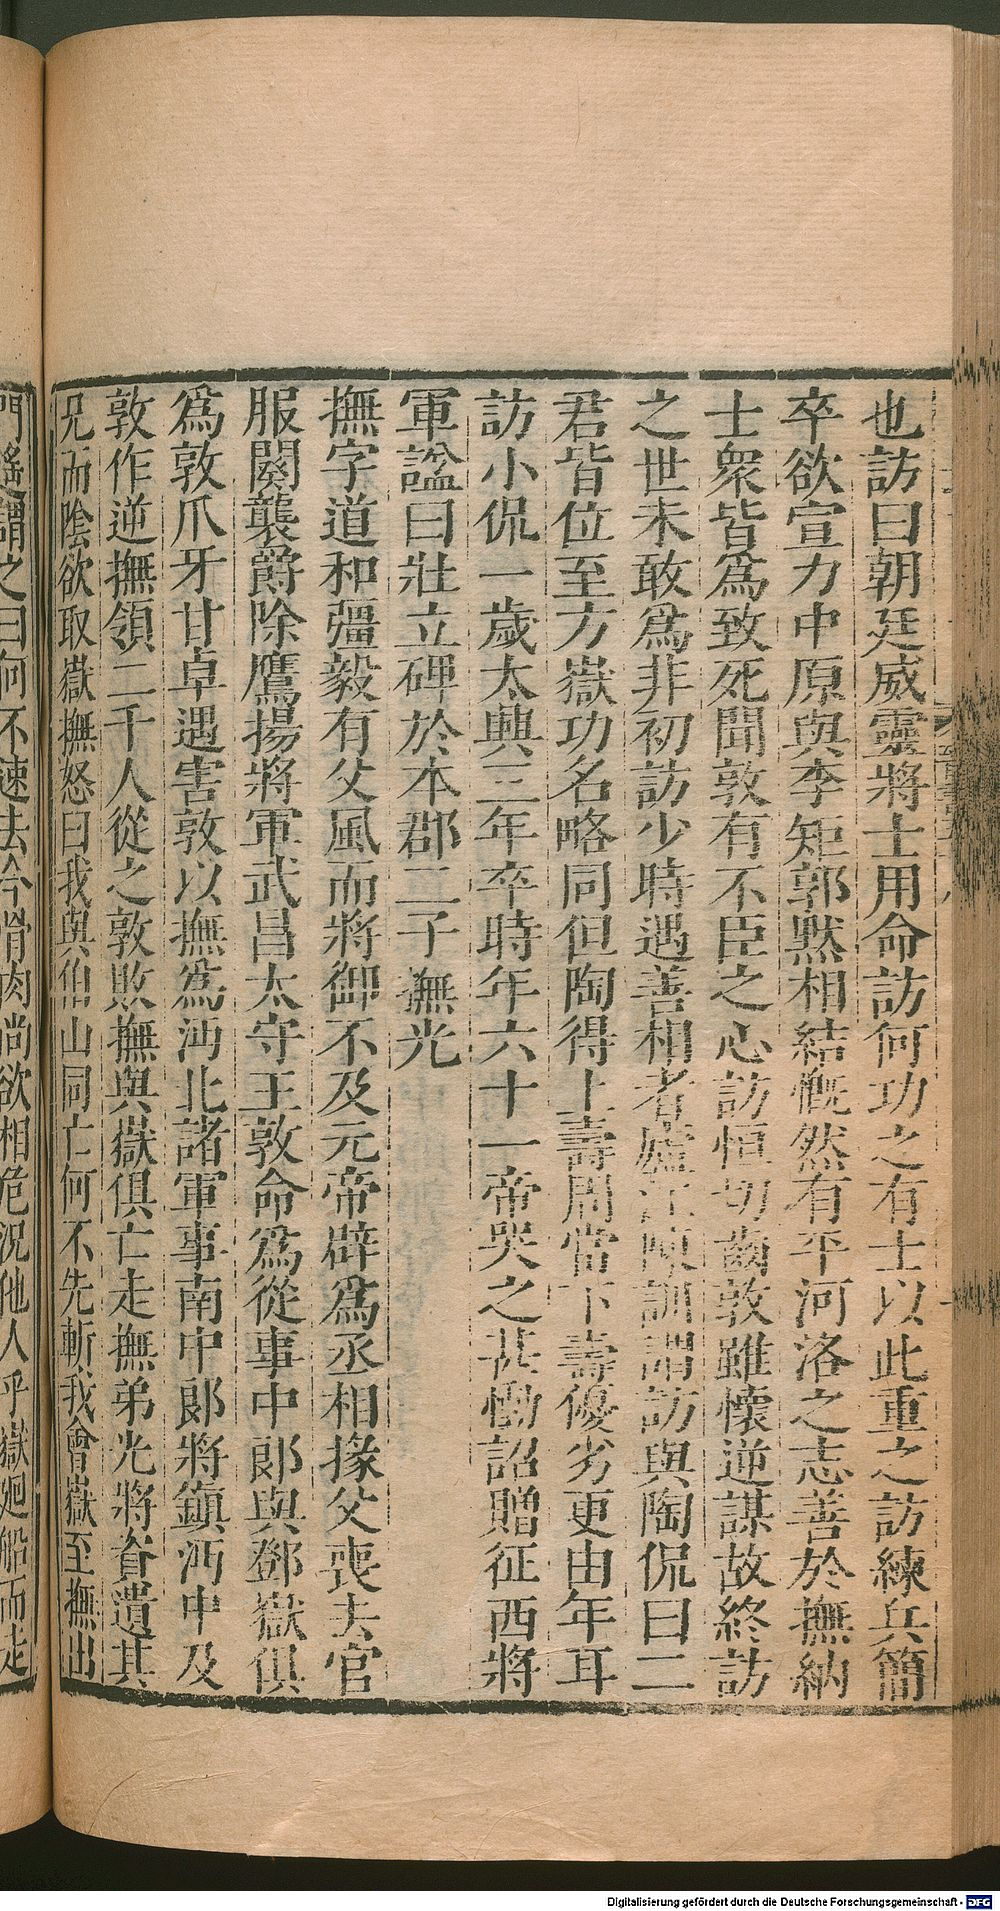 也訪曰朝廷威靈將士用命訪何功之有士以此重之訪練兵簡
卒欲宣力中原與李矩郭黙相結慨然有平河洛之志善於撫納
士衆皆爲致死聞敦有不臣之心訪恒切齒敦雖懷逆謀故終訪
之世未敢爲非初訪少時遇善相者廬江陳訓謂訪與陶侃曰二
君皆位至方嶽功名略同但陶得上壽周當下壽優劣更由年耳
訪小侃一歲太興三年卒時年六十一帝哭之甚慟詔贈征西將
軍諡曰壯立碑於本郡二子撫光
撫字道和彊毅有父風而將御不及元帝辟爲丞相掾父喪去官
服闋襲爵除鷹揚將軍武昌太守王敦命爲從事中郎與鄧嶽俱
爲敦爪牙甘卓遇害敦以撫爲沔北諸軍事南中郎將鎮沔中及
敦作逆撫領二千人從之敦敗撫與嶽俱亡走撫弟光將資遺其
兄而陰欲取嶽撫怒曰我與伯山同亡何不先斬我會嶽至撫出
門遙謂之曰何不速去今骨肉尚欲相危況他人乎嶽廻船而走
Digitalisierung gefördert durch die Deutsche Forschungsgemeinschaft - DFG